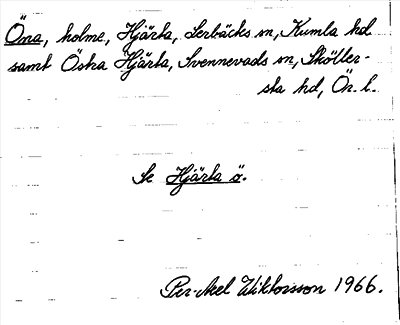 Öna, holme, Hjärta, Lerbäcks sn, Kumla hd
samt Östra Hjärta, Svennevads sn, Sköller-
sta hd, Ör. l.
Se Hjärta ö.
Per-Axel Wiktorsson 1966.